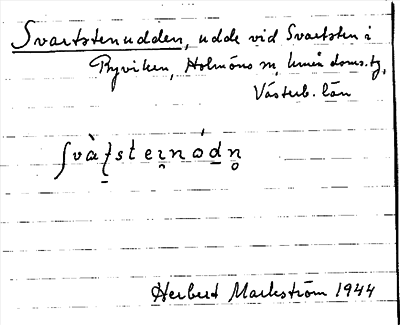 Svartstenudden, udde vid Svartsten i
Byviken, Holmöns sn, Umeå doms.tg,
Västerb. län
ʃvàʈsteɪ̯nódn̥
Herbert Markström 1944